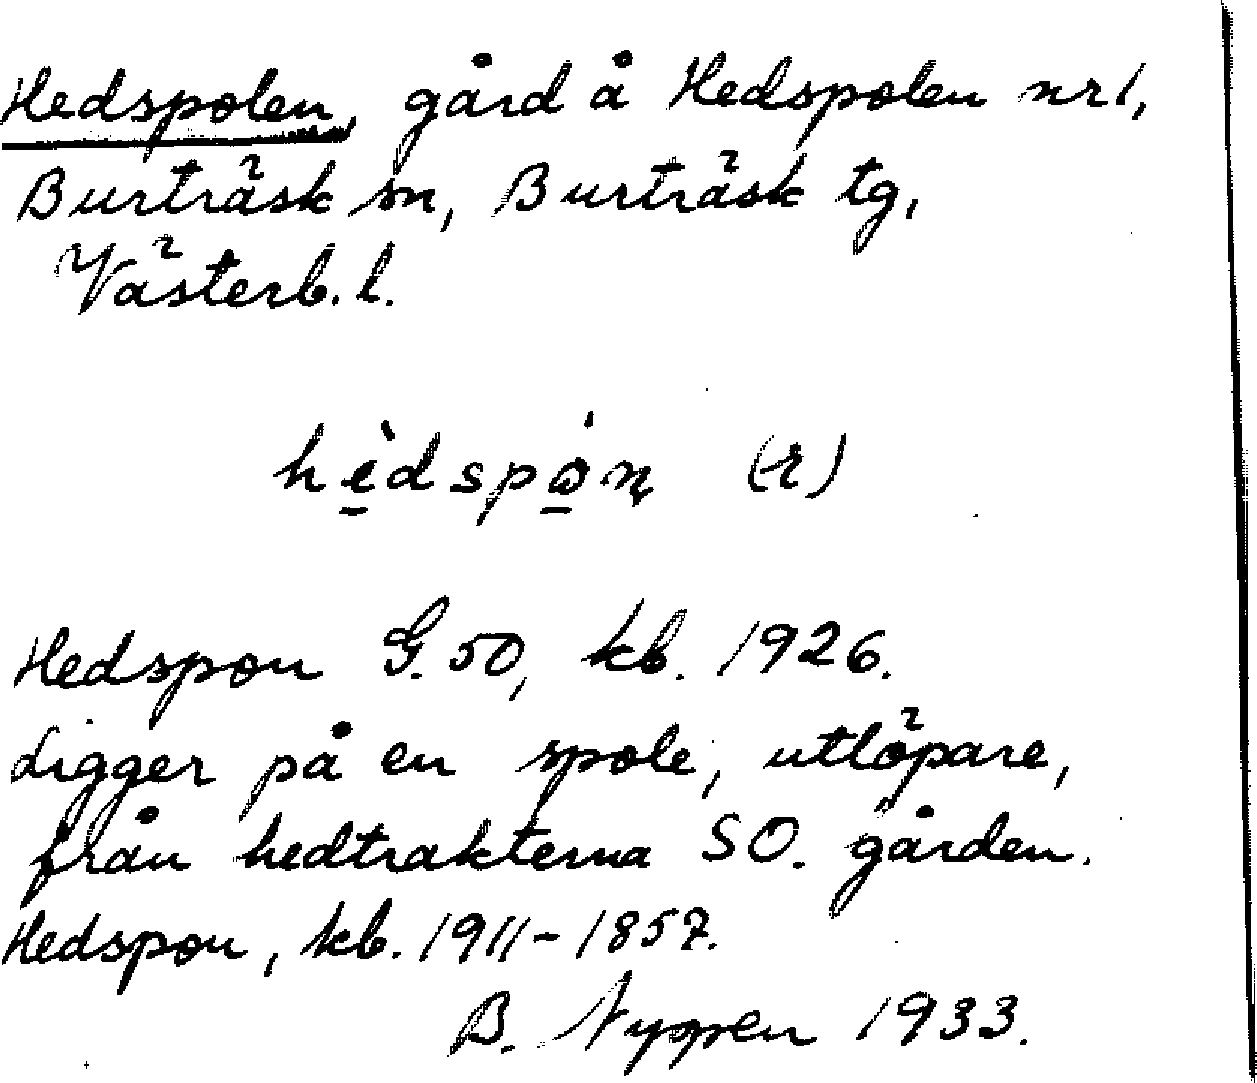 Hedspolen, gård å Hedspolen nr 1,
Burträsk sn, Burträsk tg,
Västerb. l.
hèdspòn (-r)
Hedspon G. 50, kb. 1926.
Ligger på en spole, utlöpare,
från hedtrakterna SO. gården.
Hedspon, kb. 1911-1857.
B. 1933.